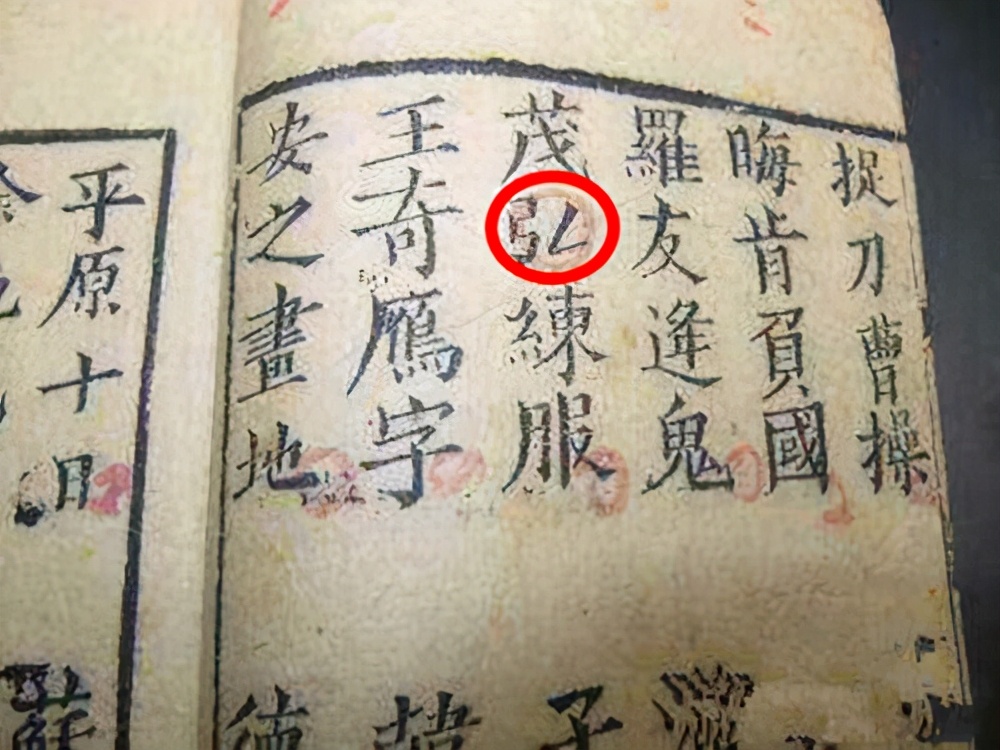 捉刀曹操
晦肯負國
羅友逢鬼
茂弘練服
子
王奇鴈字
安之畫地
平原十日